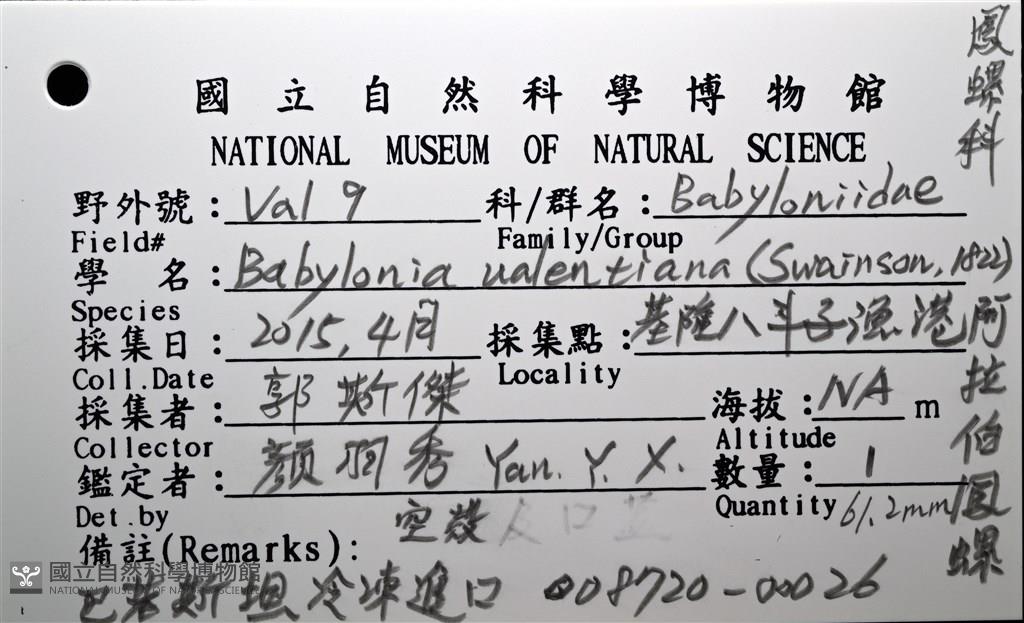 國立自然科學博物館
NATIONAL MUSEUM OF NATURAL SCIENCE
野外號：Val 9 科/群名：Babyloniidae
Field# Family/Group
學名：Babylonia valentiana (Swainson, 1822)
Species
採集日：2015, 4月 採集點：基隆八斗子漁港
Coll.Date Locality
採集者：郭斯傑 海拔：NA m
Collector Altitude
鑑定者：顏羽秀 Yan. Y. X. 數量：1
Det.by Quantity 61.2mm
空殼
備註(Remarks):
巴基斯坦冷凍進口 008720-00026
鳳螺科
阿拉伯鳳螺
國立自然科學博物館
NATIONAL MUSEUM OF NATURAL SCIENCE